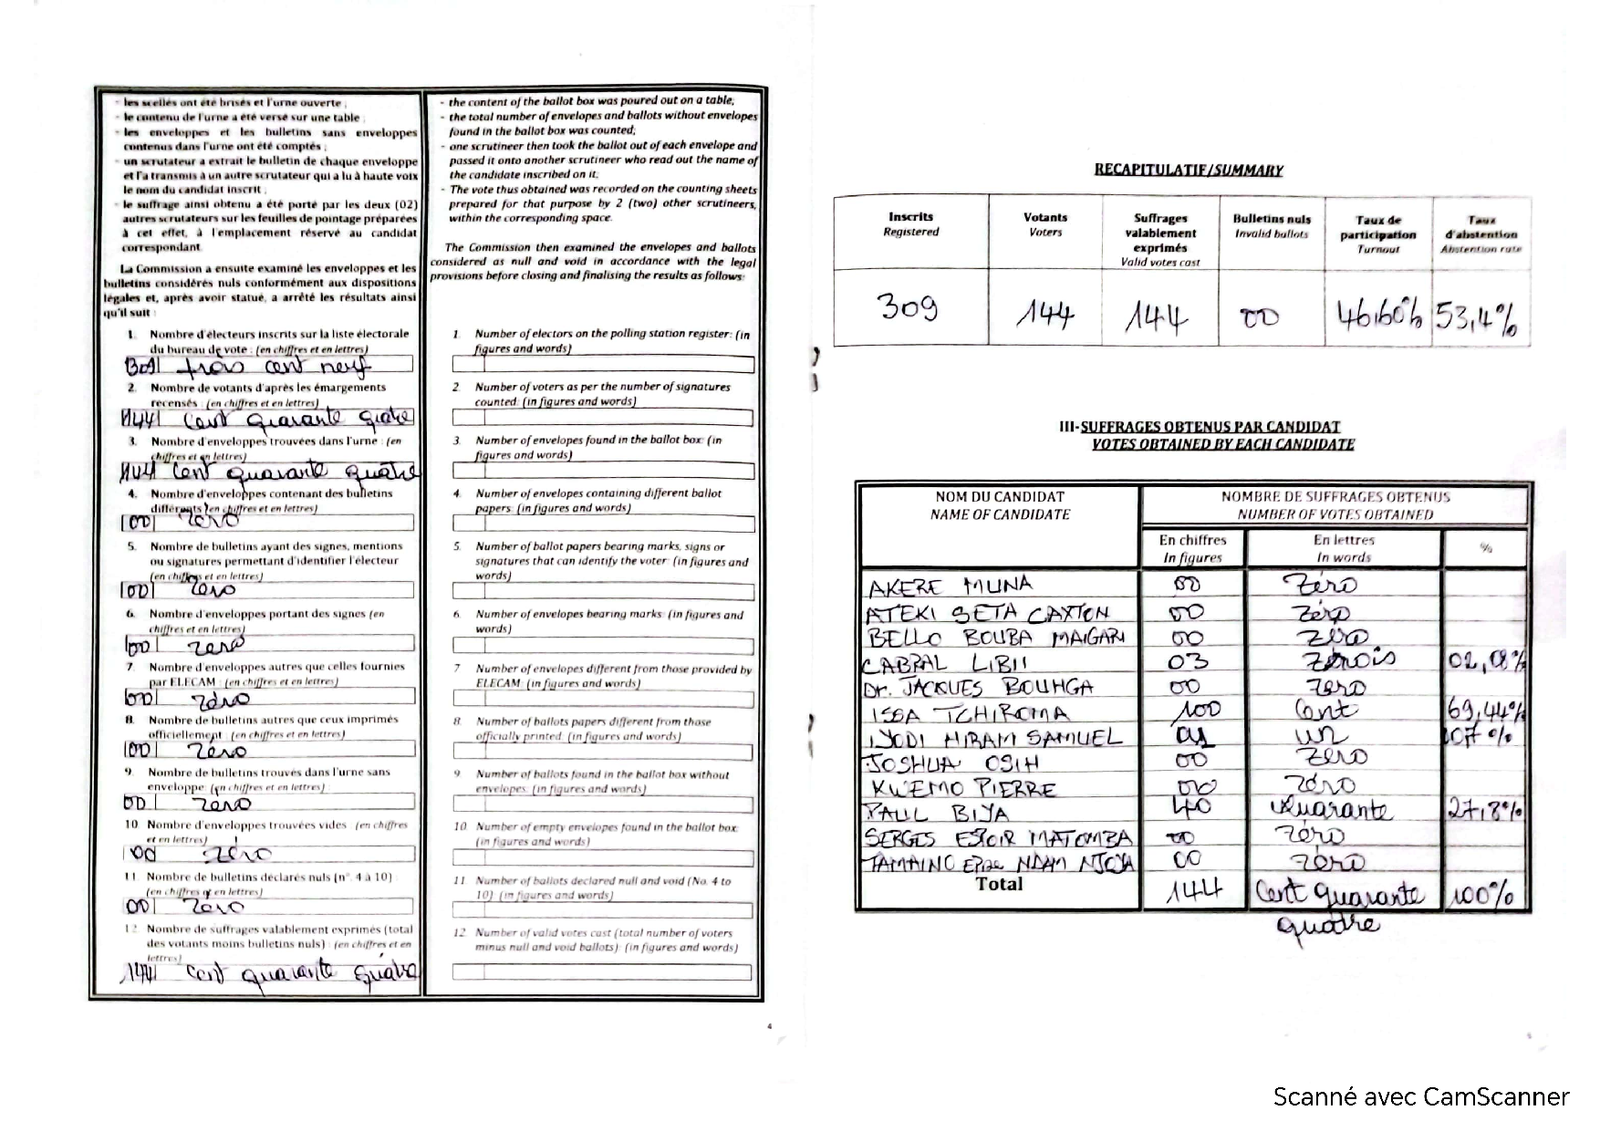 - les scellés ont été brisés et l'urne ouverte ;
- le contenu de l'urne a été versé sur une table ;
- les enveloppes et les bulletins sans enveloppes
contenus dans l'urne ont été comptés ;
- un scrutateur a extrait le bulletin de chaque enveloppe
et l'a transmis à un autre scrutateur qui a lu à haute voix
le nom du candidat inscrit ;
- le suffrage ainsi obtenu a été porté par les deux (02)
autres scrutateurs sur les feuilles de pointage préparées
à cet effet, à l'emplacement réservé au candidat
correspondant.
La Commission a ensuite examiné les enveloppes et les
bulletins considérés nuls conformément aux dispositions
légales et, après avoir statué, a arrêté les résultats ainsi
qu'il suit :
1. Nombre d'électeurs inscrits sur la liste électorale
du bureau de vote : (en chiffres et en lettres)
309 trois cent neuf
2. Nombre de votants d'après les émargements
recensés : (en chiffres et en lettres)
144 Cent quarante quatre
3. Nombre d'enveloppes trouvées dans l'urne : (en
chiffres et en lettres)
144 Cent quarante quatre
4. Nombre d'enveloppes contenant des bulletins
différents : (en chiffres et en lettres)
00 zéro
5. Nombre de bulletins ayant des signes, mentions
ou signatures permettant d'identifier l'électeur
(en chiffres et en lettres)
00 zero
6. Nombre d'enveloppes portant des signes (en
chiffres et en lettres)
00 zero
7. Nombre d'enveloppes autres que celles fournies
par ELECAM : (en chiffres et en lettres)
00 zéro
8. Nombre de bulletins autres que ceux imprimés
officiellement : (en chiffres et en lettres)
00 zéro
9. Nombre de bulletins trouvés dans l'urne sans
enveloppe: (en chiffres et en lettres)
00 zero
10. Nombre d'enveloppes trouvées vides (en chiffres
et en lettres)
00 zéro
11. Nombre de bulletins déclarés nuls (n° 4 à 10)
(en chiffres et en lettres)
00 zéro
12. Nombre de suffrages valablement exprimés (total
des votants moins bulletins nuls) : (en chiffres et en
lettres)
144 Cent quarante quatre
- the content of the ballot box was poured out on a table;
- the total number of envelopes and ballots without envelopes
found in the ballot box was counted;
- one scrutineer then took the ballot out of each envelope and
passed it onto another scrutineer who read out the name of
the candidate inscribed on it;
- The vote thus obtained was recorded on the counting sheets
prepared for that purpose by 2 (two) other scrutineers,
within the corresponding space.
The Commission then examined the envelopes and ballots
considered as null and void in accordance with the legal
provisions before closing and finalising the results as follows:
1. Number of electors on the polling station register: (in
figures and words)
2. Number of voters as per the number of signatures
counted: (in figures and words)
3. Number of envelopes found in the ballot box: (in
figures and words)
4. Number of envelopes containing different ballot
papers: (in figures and words)
5. Number of ballot papers bearing marks, signs or
signatures that can identify the voter: (in figures and
words)
6. Number of envelopes bearing marks: (in figures and
words)
7. Number of envelopes different from those provided by
ELECAM: (in figures and words)
8. Number of ballots papers different from those
officially printed: (in figures and words)
9. Number of ballots found in the ballot box without
envelopes: (in figures and words)
10. Number of empty envelopes found in the ballot box:
(in figures and words)
11. Number of ballots declared null and void (No. 4 to
10) (in figures and words)
12. Number of valid votes cast (total number of voters
minus null and void ballots): (in figures and words)
4
RECAPITULATIF/SUMMARY
Inscrits Registered Votants Voters Suffrages valablement exprimés Valid votes cast Bulletins nuls Invalid ballots Taux de participation Turnout Taux d'abstention Abstention rate
309 144 144 00 46,60% 53,4%
III-SUFFRAGES OBTENUS PAR CANDIDAT
VOTES OBTAINED BY EACH CANDIDATE
NOM DU CANDIDAT NOMBRE DE SUFFRAGES OBTENUS
NAME OF CANDIDATE NUMBER OF VOTES OBTAINED
En chiffres En lettres %
In figures In words
AKERE MUNA 00 Zéro
ATEKI SETA CAXTON 00 zéro
BELLO BOUBA MAIGARI 00 zéro
CABRAL LIBII 03 02,08%
Dr. JACQUES BOUHGA 00 zero
ISSA TCHIROMA 100 Cent 69,44%
IYODI HIRAM SAMUEL 01 un 07 %
JOSHUA OSIH 00 zero
KWEMO PIERRE 00 zéro
PAUL BIYA 40 Quarante 27,8%
SERGES ESPOIR MATOMBA 00 zéro
TAMAINO Epse NDAM NJOYA 00 zéro
Total 144 Cent quarante 100%
quatre
Scanné avec CamScanner